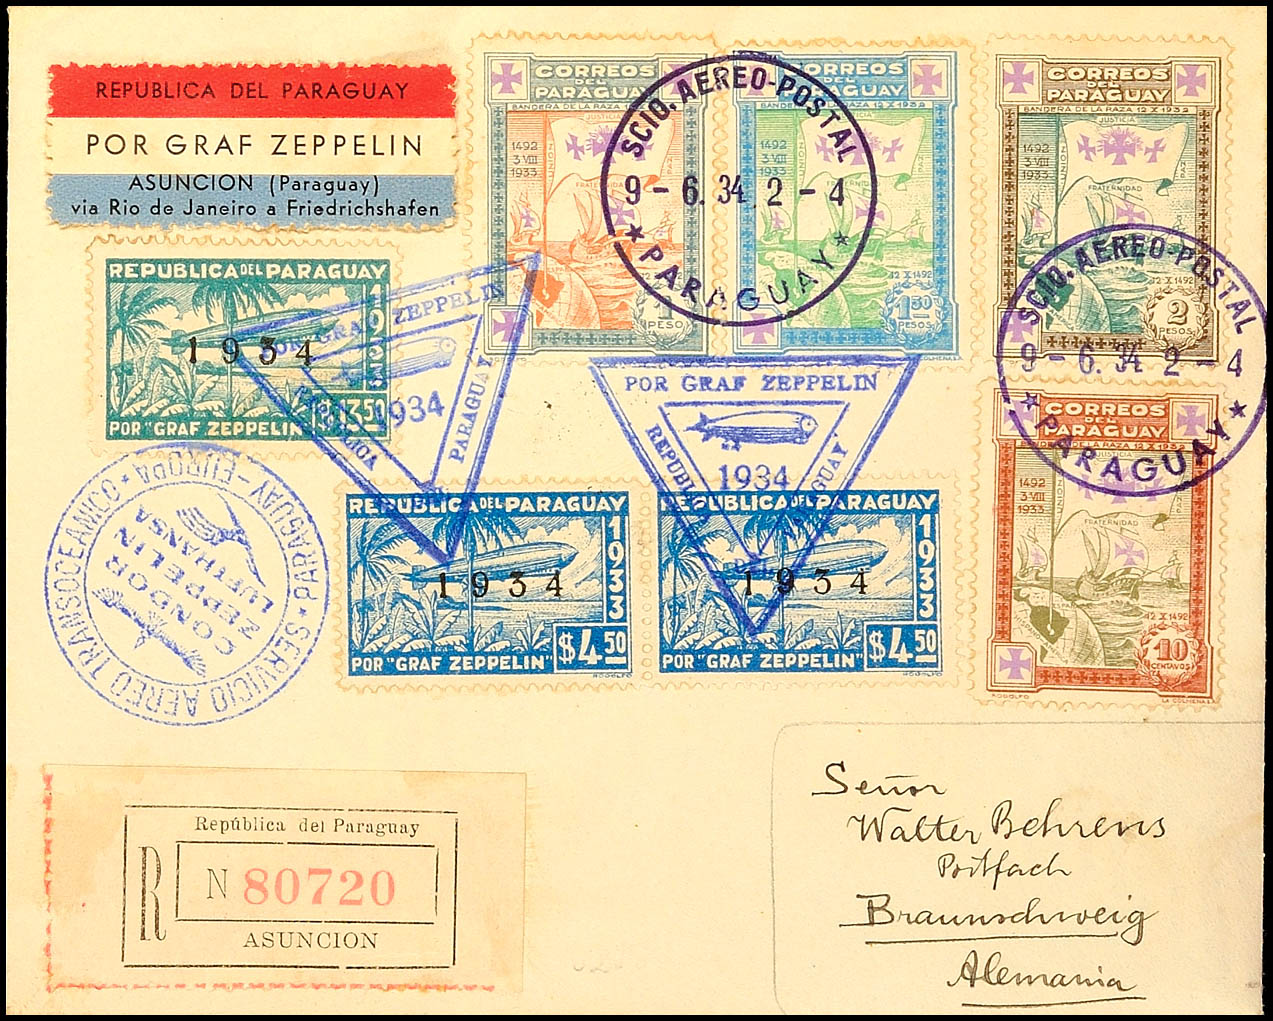 REPUBLICA DEL PARAGUAY
POR GRAF ZEPPELIN
ASUNCION (Paraguay)
via Rio de Janeiro a Friedrichshafen
CORREOS
DEL
PARAGUAY
BANDERA DE LA RAZA 12 X 193
JUSTICIA
1492
3 VIII
1933
1
PESO
CORREOS
DEL
PARAGUAY
BANDERA DE LA RAZA 12 X 1932
1492
3 VIII
1933
12 X 1492
1.50
PESOS
LA COLMENA S.A.
SCIO. AEREO-POSTAL
9 - 6. 34 2 - 4
★ PARAGUAY ★
CORREOS
DEL
PARAGUAY
BANDERA DE LA RAZA 12 X 1932
JUSTICIA
UNION
PAZ
1492
3 VIII
1933
FRATERNIDAD
12 X 1492
2
PESOS
SCIO. AEREO-POSTAL
9 - 6. 34 2 - 4
★ PARAGUAY ★
REPUBLICA DEL PARAGUAY
1933
1934
3.50
POR "GRAF ZEPPELIN"
POR GRAF ZEPPELIN
1934
PARAGUAY
POR GRAF ZEPPELIN
1934
REPUBLICA
PARAGUAY
CORREOS
DEL
PARAGUAY
BANDERA DE LA RAZA 12 X 1932
JUSTICIA
UNION
1492
3 VIII
1933
FRATERNIDAD
12 X 1492
10
CENTAVOS
RODOLFO
LA COLMENA S.A.
SERVICIO AEREO TRANSOCEANICO * PARAGUAY-EUROPA *
CONDOR
ZEPPELIN
LUFTHANSA
REPUBLICA DEL PARAGUAY
1933
1934
$4.50
POR "GRAF ZEPPELIN"
RODOLFO
REPUBLICA DEL PARAGUAY
1933
1934
$4.50
POR "GRAF ZEPPELIN"
RODOLFO
República del Paraguay
R
N 80720
ASUNCION
Señor
Walter Behrens
Postfach
Braunschweig
Alemania